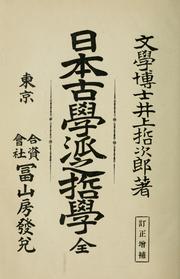 文學博士井上哲次郎著
訂正增補
日本古學派之哲學 全
東京
合資
會社
冨山房發兌